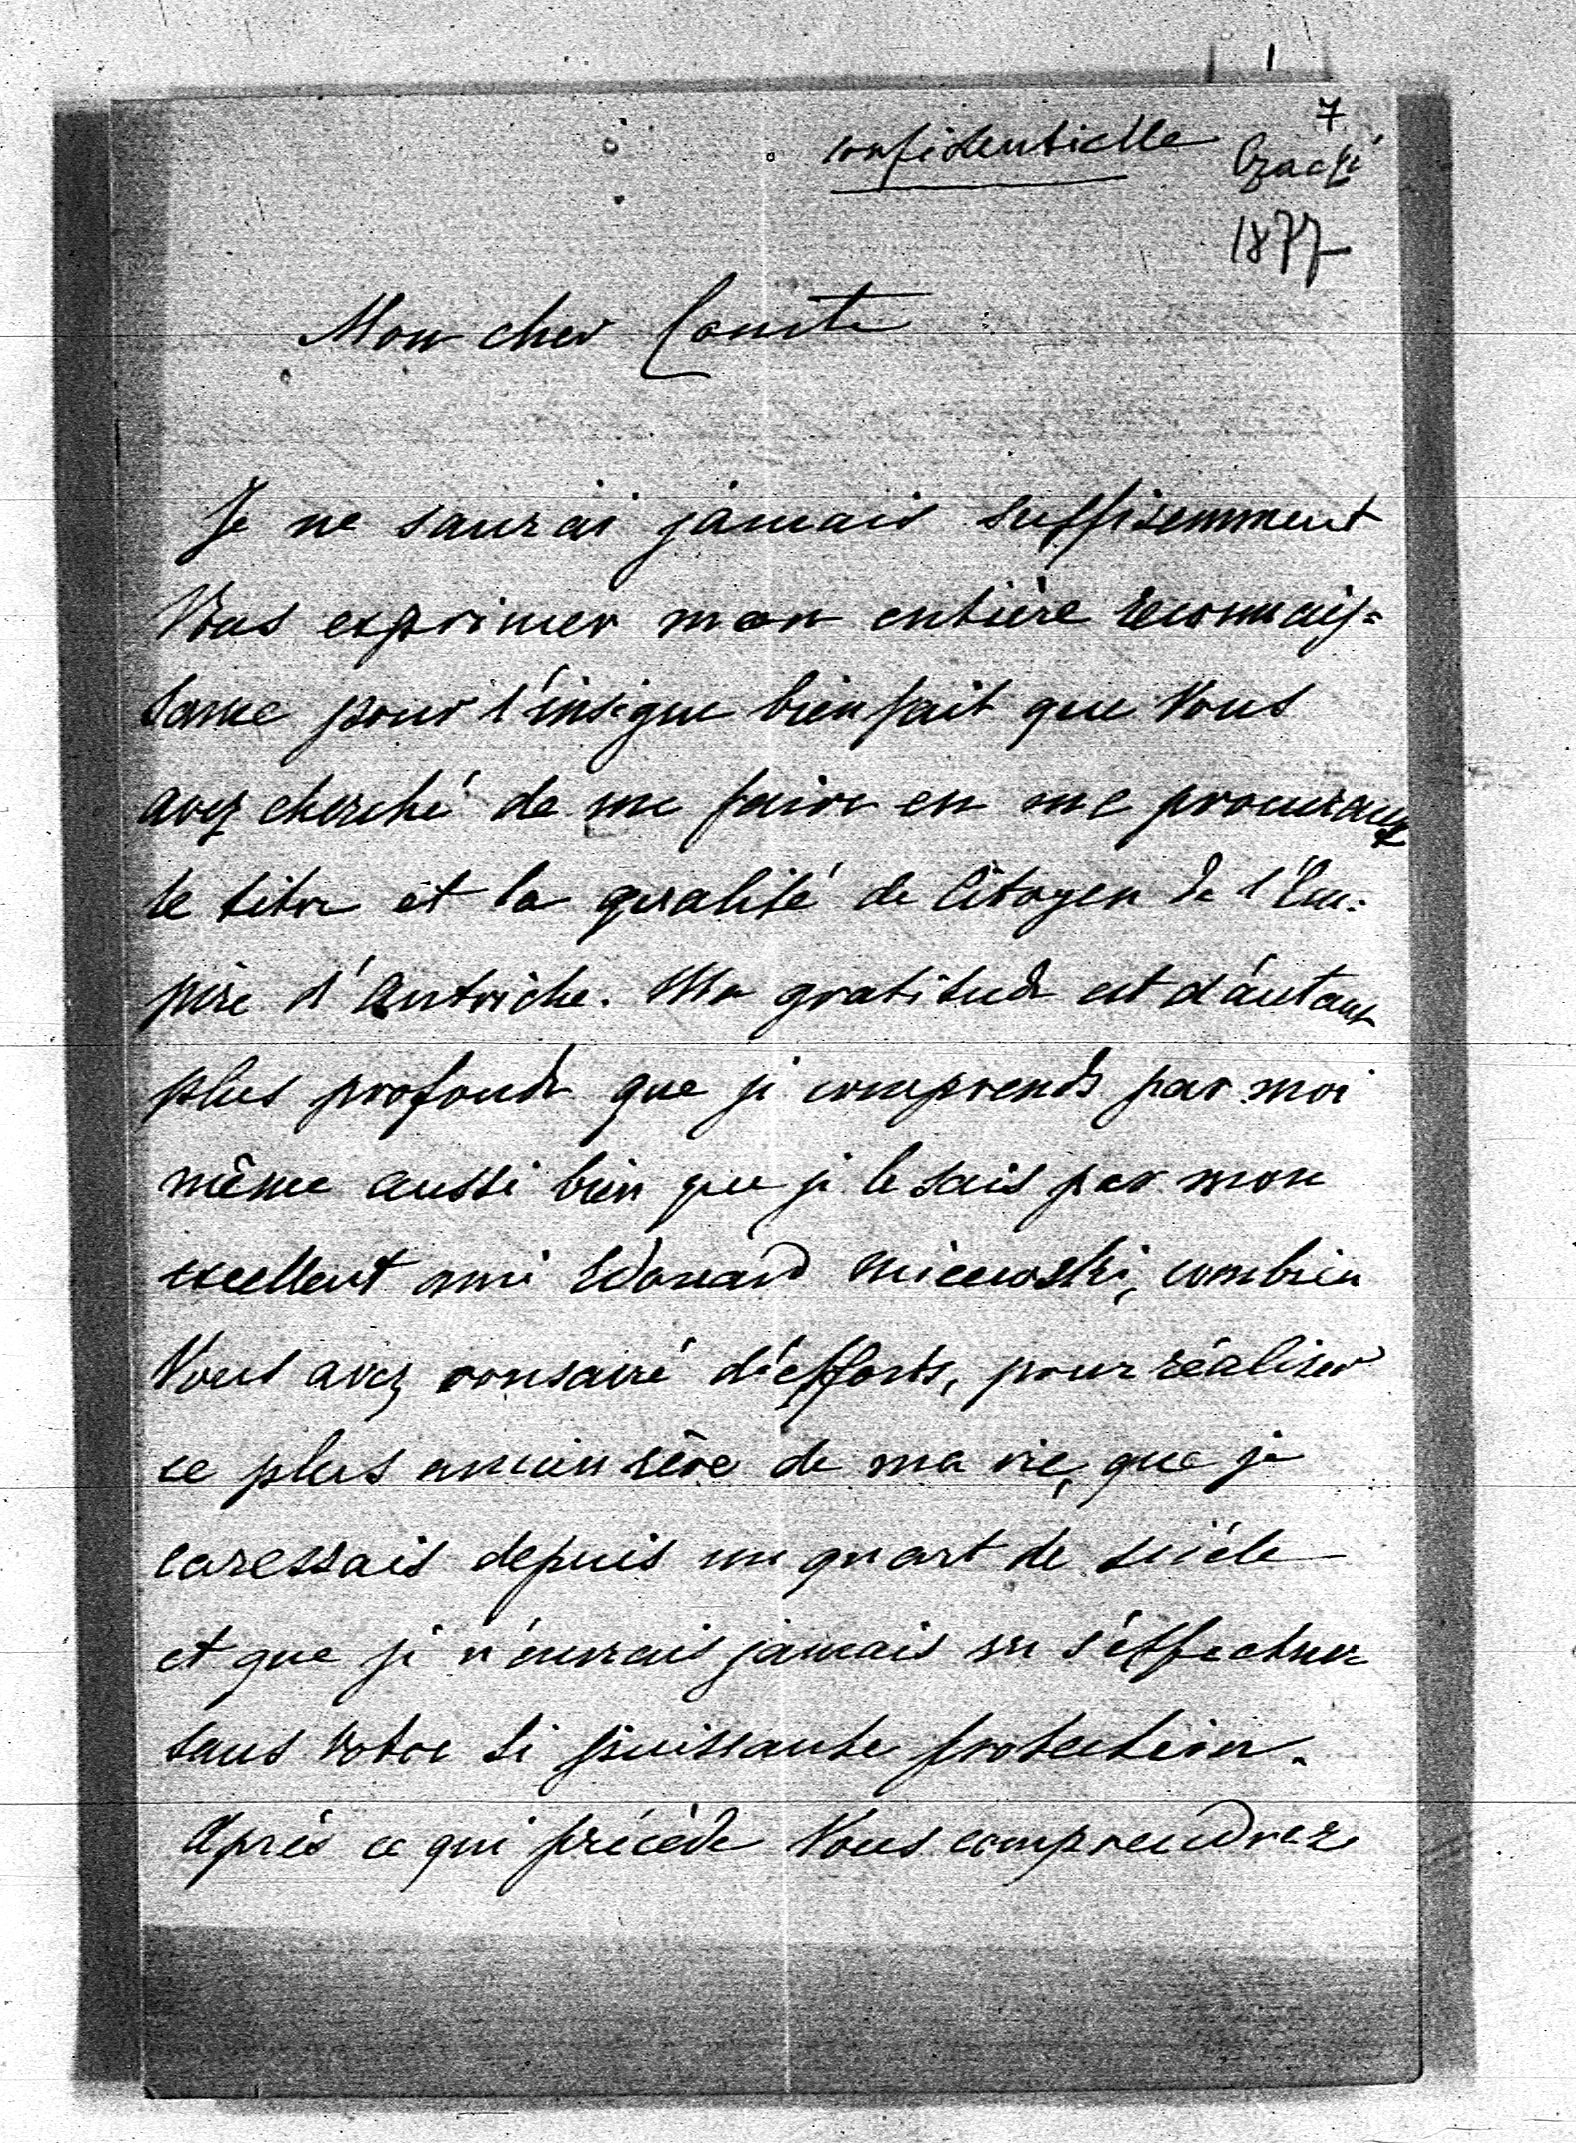 7
confidentielle
1877
Mon cher Comte
Je ne saurai jamais suffisemment
Vous exprimer mon entière reconnais=
sance pour l'insigne bienfait que Vous
avez cherché de me faire en me procurant
le titre et la qualité de Citoyen de l'Em-
pire d'Autriche. Ma gratitude est d'autant
plus profonde que je comprends par moi
même aussi bien que je le sais par mon
excellent ami Edouard Micewski, combien
Vous avez consacré d'efforts, pour réaliser
ce plus ancien rêve de ma vie, que je
caressais depuis un quart de siècle
et que je n'aurais jamais vu s'effectuer
sans votre si puissante protection.
Après ce qui précède Vous comprendrez